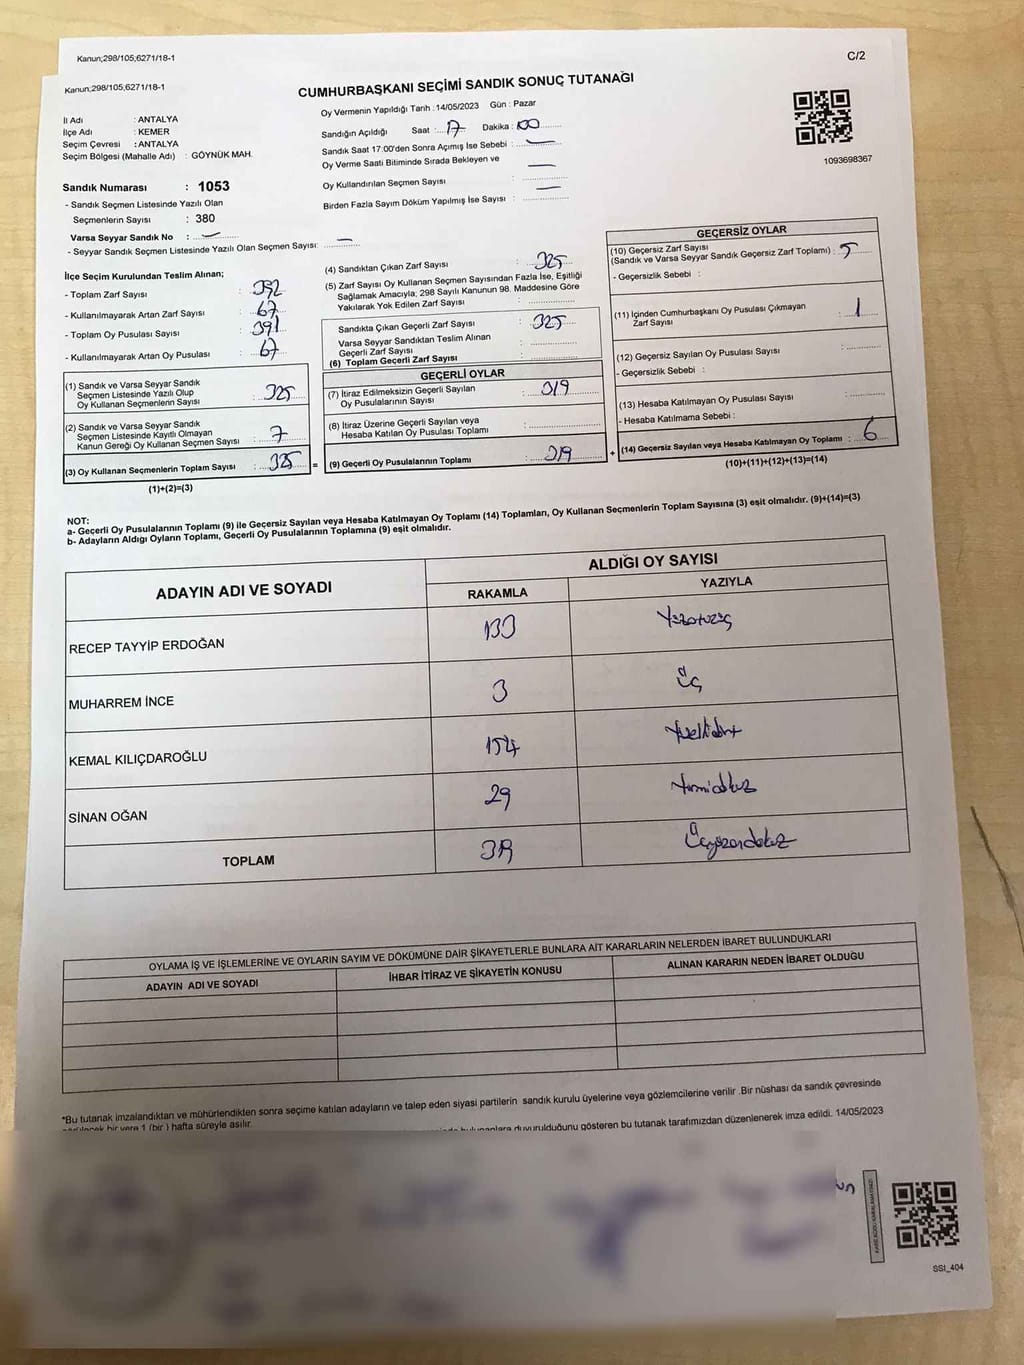 Kanun;298/105;6271/18-1
C/2
Kanun;298/105;6271/18-1
CUMHURBAŞKANI SEÇİMİ SANDIK SONUÇ TUTANAĞI
İl Adı : ANTALYA
İlçe Adı : KEMER
Seçim Çevresi : ANTALYA
Seçim Bölgesi (Mahalle Adı) : GÖYNÜK MAH.
Oy Vermenin Yapıldığı Tarih : 14/05/2023 Gün : Pazar
Sandığın Açıldığı Saat : 17 Dakika : 00
Sandık Saat 17:00'den Sonra Açımış İse Sebebi : —
Oy Verme Saati Bitiminde Sırada Bekleyen ve
Oy Kullandırılan Seçmen Sayısı : —
Birden Fazla Sayım Döküm Yapılmış İse Sayısı : —
1093698367
Sandık Numarası : 1053
- Sandık Seçmen Listesinde Yazılı Olan
Seçmenlerin Sayısı : 380
Varsa Seyyar Sandık No : —
- Seyyar Sandık Seçmen Listesinde Yazılı Olan Seçmen Sayısı: —
İlçe Seçim Kurulundan Teslim Alınan;
- Toplam Zarf Sayısı : 392
- Kullanılmayarak Artan Zarf Sayısı : 67
- Toplam Oy Pusulası Sayısı : 391
- Kullanılmayarak Artan Oy Pusulası : 67
(1) Sandık ve Varsa Seyyar Sandık
Seçmen Listesinde Yazılı Olup
Oy Kullanan Seçmenlerin Sayısı : 325
(2) Sandık ve Varsa Seyyar Sandık
Seçmen Listesinde Kayıtlı Olmayan
Kanun Gereği Oy Kullanan Seçmen Sayısı : 7
(3) Oy Kullanan Seçmenlerin Toplam Sayısı : 325
(1)+(2)=(3)
(4) Sandıktan Çıkan Zarf Sayısı : 325
(5) Zarf Sayısı Oy Kullanan Seçmen Sayısından Fazla İse, Eşitliği
Sağlamak Amacıyla; 298 Sayılı Kanunun 98. Maddesine Göre
Yakılarak Yok Edilen Zarf Sayısı :
Sandıkta Çıkan Geçerli Zarf Sayısı : 325
Varsa Seyyar Sandıktan Teslim Alınan
Geçerli Zarf Sayısı :
(6) Toplam Geçerli Zarf Sayısı :
GEÇERLİ OYLAR
(7) İtiraz Edilmeksizin Geçerli Sayılan
Oy Pusulalarının Sayısı : 319
(8) İtiraz Üzerine Geçerli Sayılan veya
Hesaba Katılan Oy Pusulası Toplamı :
= (9) Geçerli Oy Pusulalarının Toplamı : 319 +
GEÇERSİZ OYLAR
(10) Geçersiz Zarf Sayısı
(Sandık ve Varsa Seyyar Sandık Geçersiz Zarf Toplamı) : 5
- Geçersizlik Sebebi :
(11) İçinden Cumhurbaşkanı Oy Pusulası Çıkmayan
Zarf Sayısı : 1
(12) Geçersiz Sayılan Oy Pusulası Sayısı :
- Geçersizlik Sebebi :
(13) Hesaba Katılmayan Oy Pusulası Sayısı :
- Hesaba Katılmama Sebebi :
(14) Geçersiz Sayılan veya Hesaba Katılmayan Oy Toplamı : 6
(10)+(11)+(12)+(13)=(14)
NOT:
a- Geçerli Oy Pusulalarının Toplamı (9) ile Geçersiz Sayılan veya Hesaba Katılmayan Oy Toplamı (14) Toplamları, Oy Kullanan Seçmenlerin Toplam Sayısına (3) eşit olmalıdır. (9)+(14)=(3)
b- Adayların Aldığı Oyların Toplamı, Geçerli Oy Pusulalarının Toplamına (9) eşit olmalıdır.
ADAYIN ADI VE SOYADI
ALDIĞI OY SAYISI
RAKAMLA YAZIYLA
RECEP TAYYİP ERDOĞAN 133 Yüzotuzüç
MUHARREM İNCE 3 Üç
KEMAL KILIÇDAROĞLU 154 Yüzellidört
SİNAN OĞAN 29 Yirmidokuz
TOPLAM 319 Üçyüzondokuz
OYLAMA İŞ VE İŞLEMLERİNE VE OYLARIN SAYIM VE DÖKÜMÜNE DAİR ŞİKAYETLERLE BUNLARA AİT KARARLARIN NELERDEN İBARET BULUNDUKLARI
ADAYIN ADI VE SOYADI İHBAR İTİRAZ VE ŞİKAYETİN KONUSU ALINAN KARARIN NEDEN İBARET OLDUĞU
*Bu tutanak imzalandıktan ve mühürlendikten sonra seçime katılan adayların ve talep eden siyasi partilerin sandık kurulu üyelerine veya gözlemcilerine verilir .Bir nüshası da sandık çevresinde
bir yere 1 (bir ) hafta süreyle asılır.
duyurulduğunu gösteren bu tutanak tarafımızdan düzenlenerek imza edildi. 14/05/2023
SSI_404